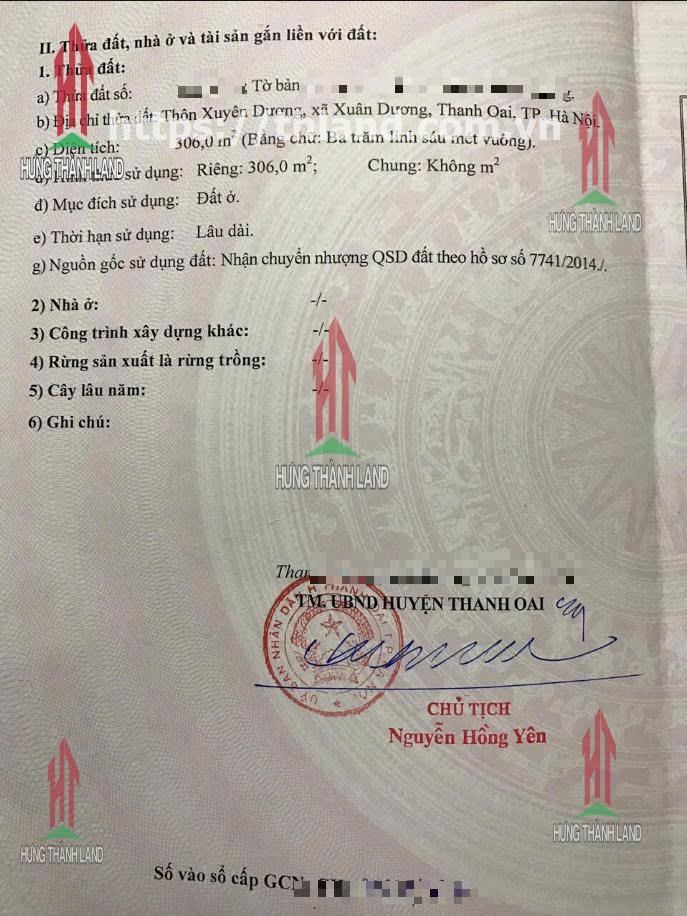 II. Thửa đất, nhà ở và tài sản gắn liền với đất:
1. Thửa đất:
a) Thửa đất số: Tờ bản
b) Địa chỉ thửa đất: Thôn Xuyên Dương, xã Xuân Dương, Thanh Oai, TP. Hà Nội.
c) Diện tích: 306,0 m² (Bằng chữ: Ba trăm linh sáu mét vuông).
sử dụng: Riêng: 306,0 m²; Chung: Không m²
đ) Mục đích sử dụng: Đất ở.
e) Thời hạn sử dụng: Lâu dài.
g) Nguồn gốc sử dụng đất: Nhận chuyển nhượng QSD đất theo hồ sơ số 7741/2014./.
2) Nhà ở: -/-
3) Công trình xây dựng khác: -/-
4) Rừng sản xuất là rừng trồng: -/-
5) Cây lâu năm: -/-
6) Ghi chú:
TM. UBND HUYỆN THANH OAI
CHỦ TỊCH
Nguyễn Hồng Yên
Số vào sổ cấp GCN
HƯNG THÀNH LAND
HƯNG THÀNH LAND
HƯNG THÀNH LAND
HƯNG THÀNH LAND
HƯNG THÀNH LAND